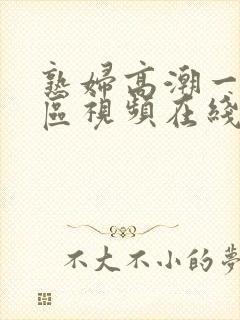 熟婦高潮一
區視頻在綫
不大不小的夢